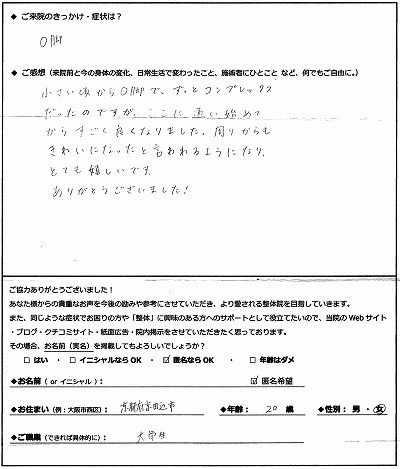 ◆ ご来院のきっかけ・症状は？
O脚
◆ ご感想（来院前と今の身体の変化、日常生活で変わったこと、施術者にひとこと など、何でもご自由に。）
小さい頃からO脚で、ずっとコンプレックス
だったのですが、ここに通い始めて
からすごく良くなりました。周りからも
きれいになったと言われるようになり、
とても嬉しいです。
ありがとうございました！
ご協力ありがとうございました！
あなた様からの貴重なお声を今後の励みや参考にさせていただき、より愛される整体院を目指していきます。
また、同じような症状でお困りの方や「整体」に興味のある方へのサポートとして役立てたいので、当院のWebサイト
・ブログ・クチコミサイト・紙面広告・院内掲示をさせていただきたく思っております。
その場合、お名前（実名）を掲載してもよろしいでしょうか？
□ はい ・ □ イニシャルならOK ・ ☑ 匿名ならOK ・ □ 年齢はダメ
◆お名前（ or イニシャル ）： ☑ 匿名希望
◆お住まい（例：大阪市西区）： 京都府京田辺市 ◆年齢： 20 歳 ◆性別： 男 ・ 女
◆ご職業（できれば具体的に）： 大学生